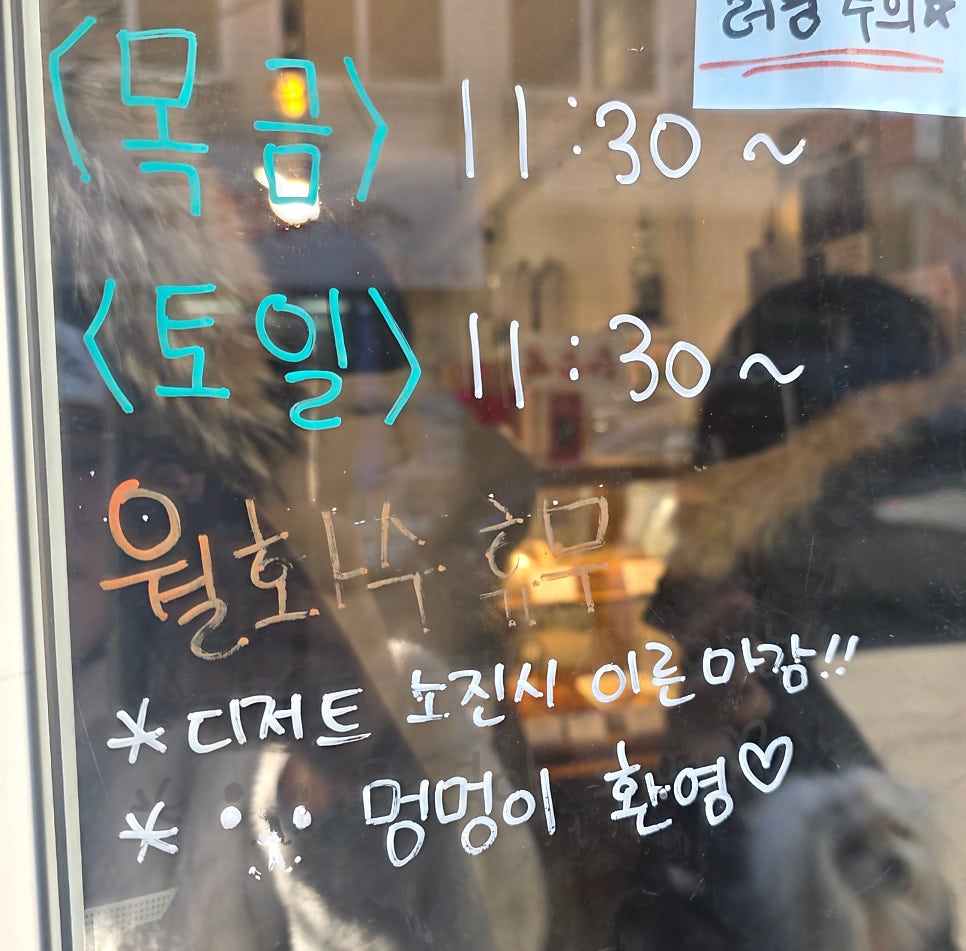 주의☆
<목금> 11:30~
<토일> 11:30~
월화수 휴무
* 디저트 소진시 이른마감!!
* 멍멍이 환영♡